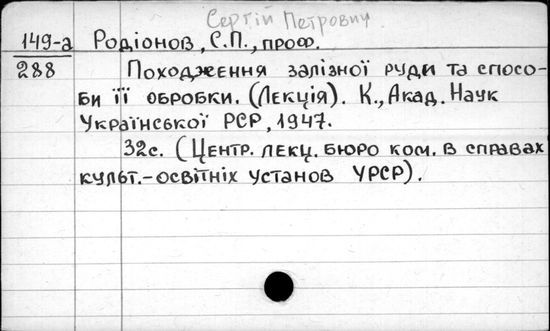 Сергій Петрович
149-а Родіонов, С.П., проф.
288 Походження залізної руди та спосо-
би її обробки. (Лекція). К., Акад. Наук
Української РСР, 1947.
32с. (Центр. лекц. бюро ком. в справах
культ.-освітніх установ УРСР).